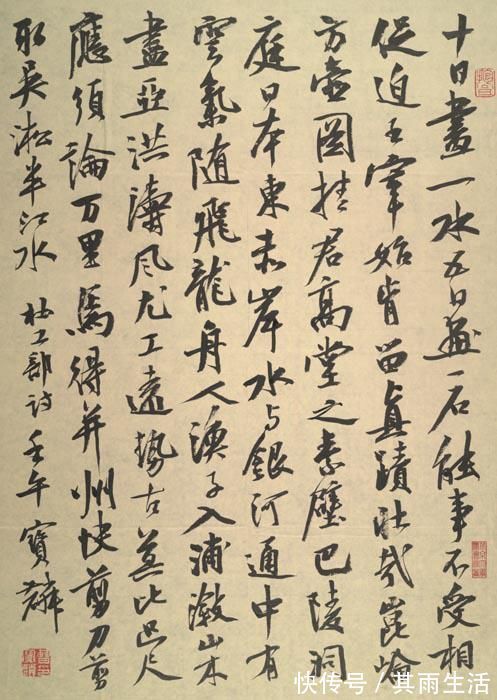 十日畫一水五日画一石能事不受相
促迫王宰始肯留真蹟壯哉崑崙
方壺圖挂君高堂之素壁巴陵洞
庭日本東赤岸水与銀河通中有
雲氣随飛龍舟人漁子入浦漵山木
盡亞洪濤風尤工遠勢古莫比咫尺
應須論万里焉得并州快剪刀剪
取吳淞半江水 杜工部詩 壬午 寶麟
快传号/其雨生活